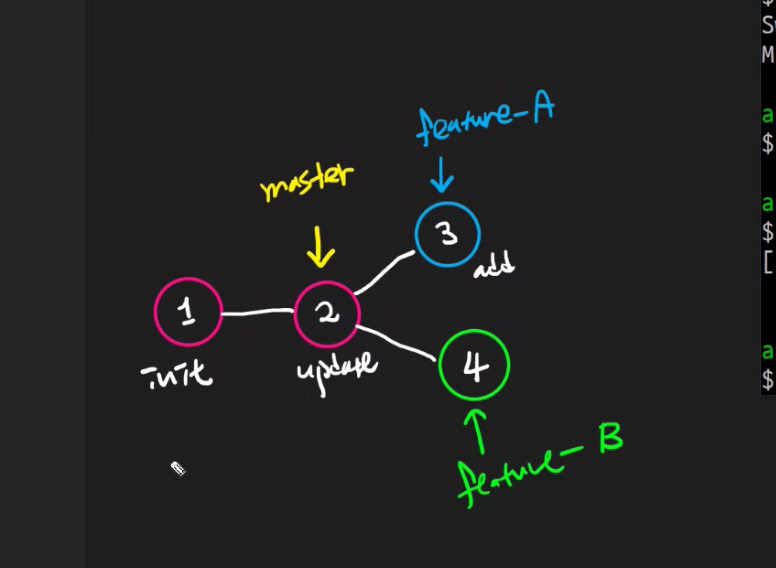 feature-A
master
3
add
1
2
init
update
4
feature-B
S
M
a
$
a
$
[
a
$